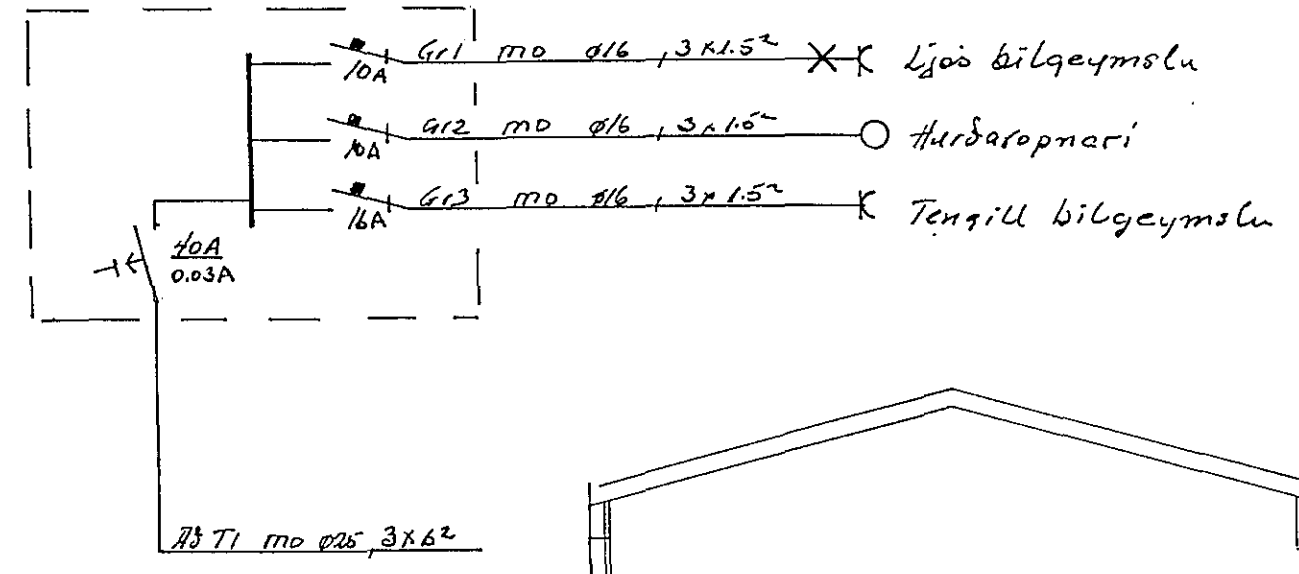 Gr1 mo ø16, 3x1.5² Ljós bílgeymslu
10A
Gr2 mo ø16, 3x1.5² Hurðaropnari
10A
Gr3 mo ø16, 3x1.5² Tengill bílgeymslu
16A
40A
0.03A
T1 mo ø25, 3x6²